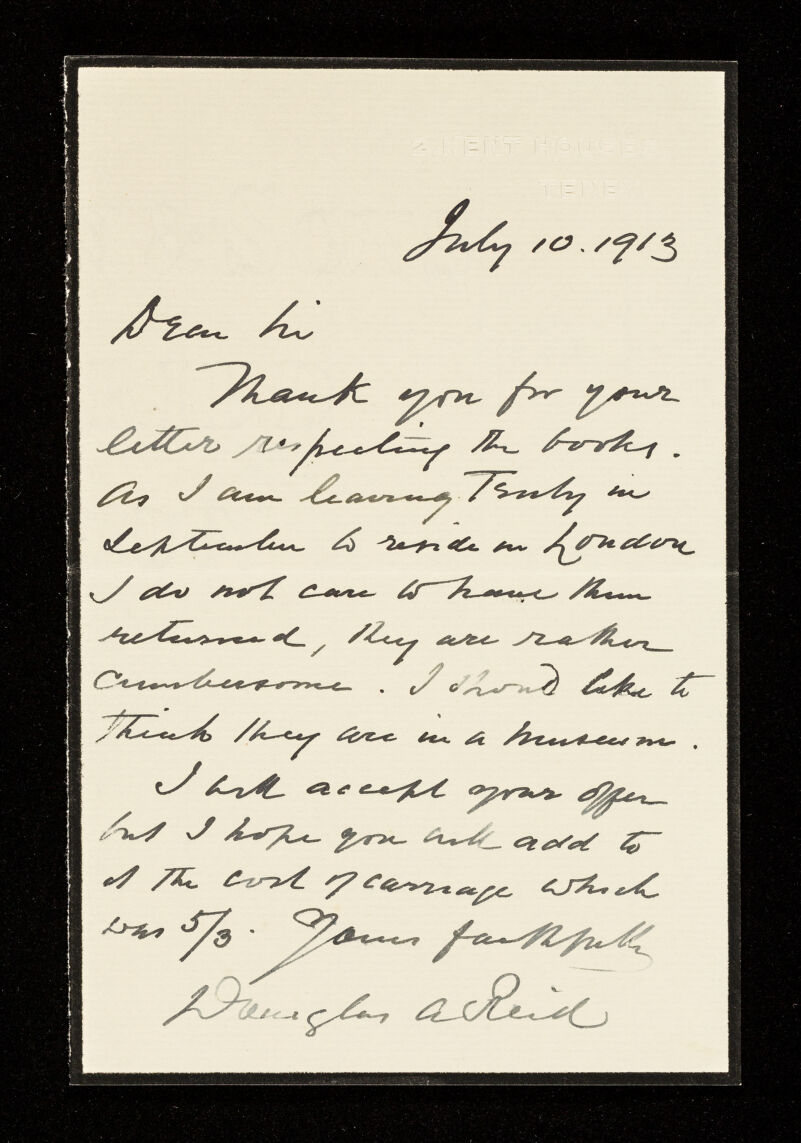 July 10. 1913
Dear Sir
Thank you for your
letter respecting the books.
As I am leaving Tenby in
September to reside in London
I do not care to have them
returned, they are rather
cumbersome. I should like to
think they are in a Museum.
I will accept your offer
but I hope you will add to
it the cost of carriage which
was 5/3. Yours faithfully
Douglas A Reid